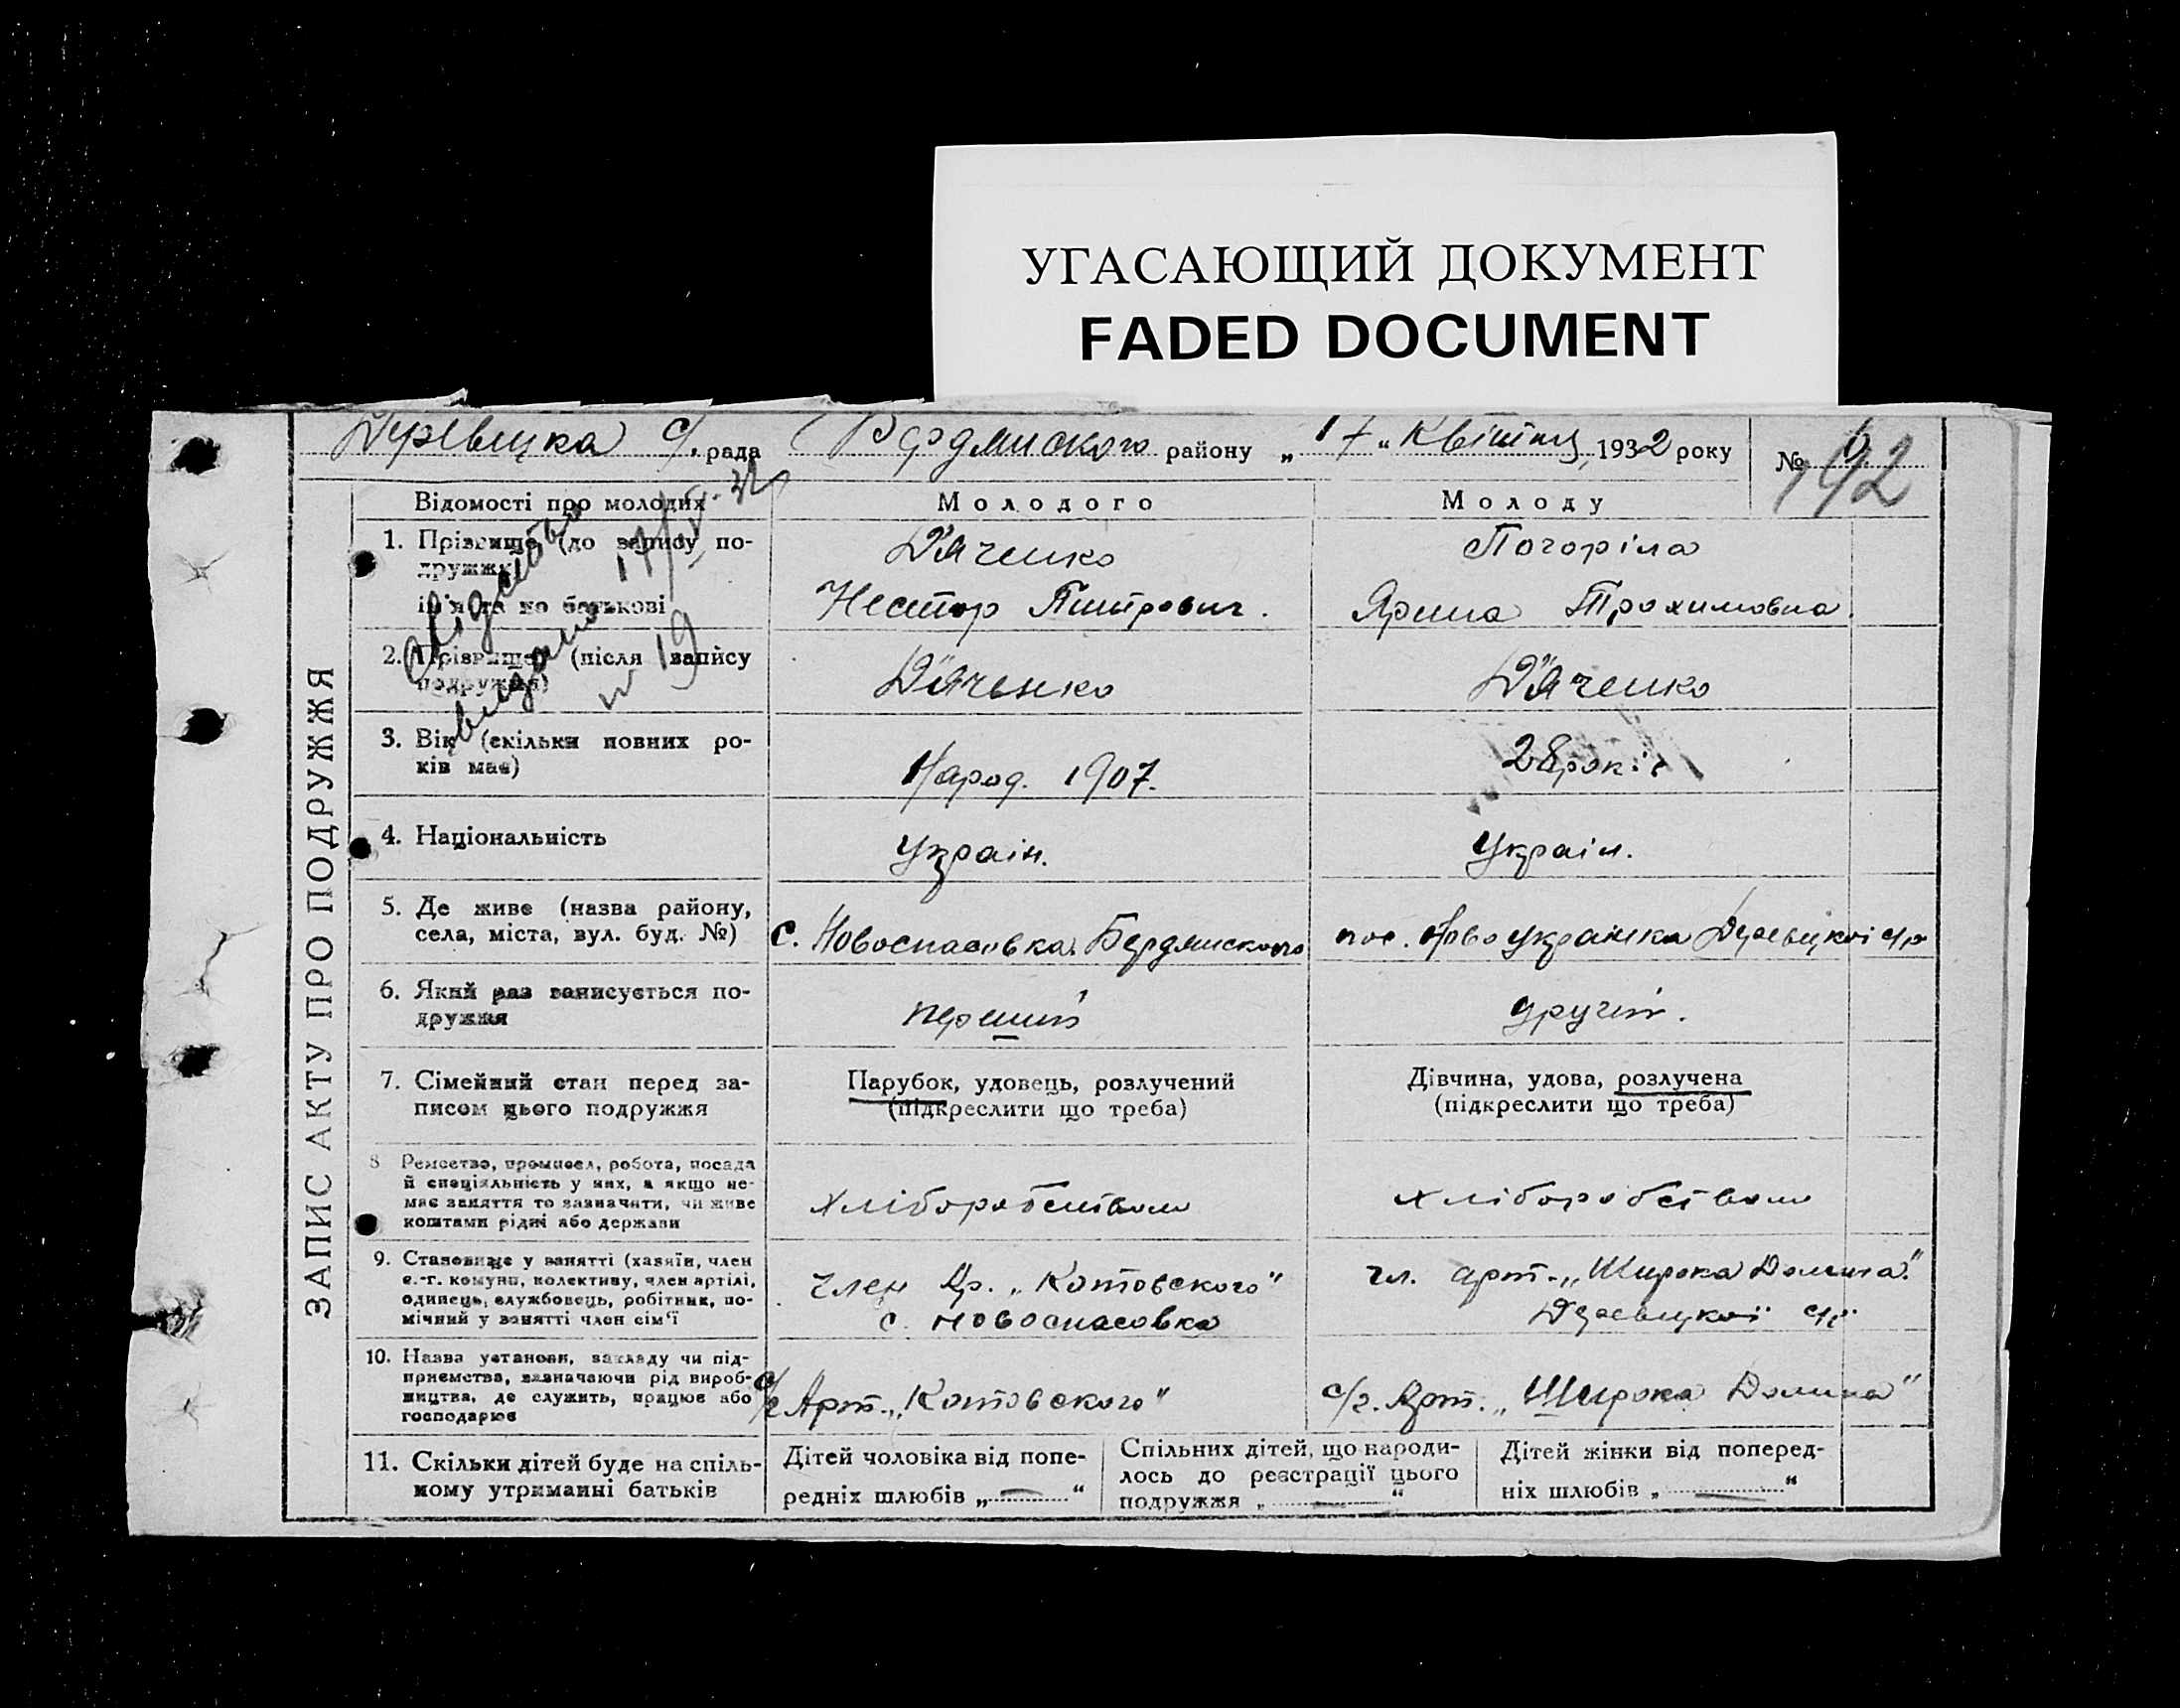 УГАСАЮЩИЙ ДОКУМЕНТ
FADED DOCUMENT
с/рада Бердянского району „17“ Квітня, 1932 року № 192
ЗАПИС АКТУ ПРО ПОДРУЖЖЯ
Відомості про молодих
Молодого
Молоду
Свідоцтво
видано 17/IV-32
№ 19
1. Прізвище (до запису по-
дружжя)
ім'я та по батькові
Д'яченко
Нестор Дмитрович.
Погоріла
Ярина Трохимовна.
2. Прізвище (після запису
подружжя)
Д'яченко
Д'яченко
3. Вік (скільки повних ро-
ків має)
Народ. 1907.
28 років
4. Національність
Україн.
Україн.
5. Де живе (назва району,
села, міста, вул. буд. №)
с. Новоспасовка Бердянского
пос. Ново українка с/р
6. Який раз записується по-
дружжя
перший
другий.
7. Сімейний стан перед за-
писом цього подружжя
Парубок, удовець, розлучений
(підкреслити що треба)
Дівчина, удова, розлучена
(підкреслити що треба)
8 Ремество, промисел, робота, посада
й спеціяльність у них, а якщо не-
має заняття то зазначити, чи живе
коштами рідні або держави
хліборобством
хліборобством
9. Становище у занятті (хазяїн, член
с.-г. комуни, колективу, член артілі,
одинець, службовець, робітник, по-
мічний у занятті член сім'ї
член Ар. „Котовского“
с. Новоспасовка
чл. арт. „Широка Долина“
с/р
10. Назва установи, закладу чи під-
приємства, зазначаючи рід вироб-
ництва, де служить, працює або
господарює
с/г Арт. „Котовского“
с/г. Арт. „Широка Долина“
11. Скільки дітей буде на спіль-
ному утриманні батьків
Дітей чоловіка від попе-
редніх шлюбів „ — “
Спільних дітей, що народи-
лось до реєстрації цього
подружжя „ — “
Дітей жінки від поперед-
ніх шлюбів „ — “